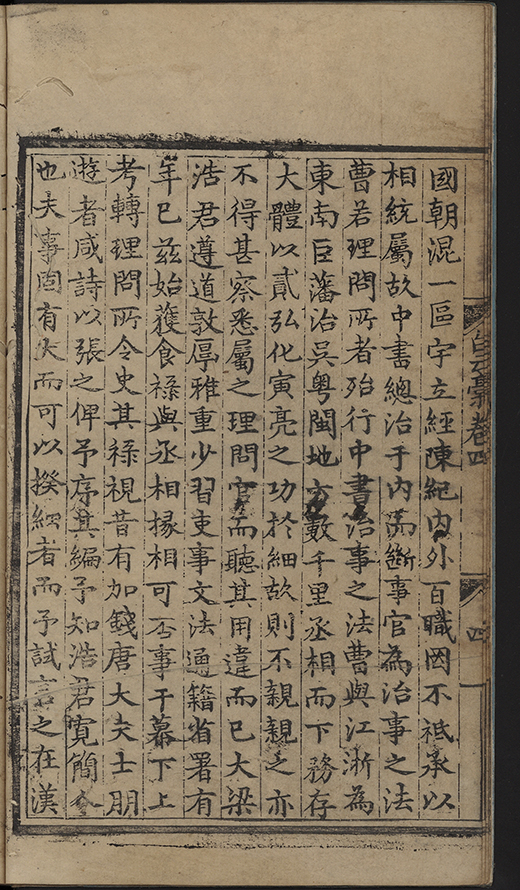 國朝混一區宇立經陳紀内外百職罔不祗承以
相統屬故中書總治于内而斷事官為治事之法
曹若理問所者殆行中書治事之法曹與江淛為
東南巨藩治吳粤閩地方數千里丞相而下務存
大體以貳弘化寅亮之功於細故則不親親之亦
不得甚察悉屬之理問官而聽其用違而已大梁
浩君遵道敦厚雅重少習吏事文法通籍省署有
年已茲始獲食祿與丞相掾相可否事于幕下上
考轉理問所令史其祿視昔有加錢唐大夫士朋
遊者咸詩以張之俾予序其編予知浩君寛簡人
也夫事固有大而可以揆細者而予試言之在漢
白雲藁卷四
四